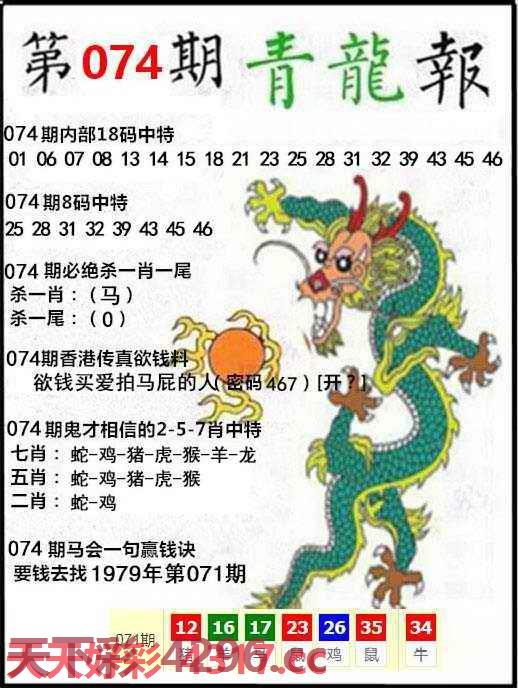 第074期青龍報
074期内部18码中特
01 06 07 08 13 14 15 18 21 23 25 28 31 32 39 43 45 46
074期8码中特
25 28 31 32 39 43 45 46
074期必绝杀一肖一尾
杀一肖：(马)
杀一尾：(0)
074期香港传真欲钱料
欲钱买爱拍马屁的人(密码467)[开?]
074期鬼才相信的2-5-7肖中特
七肖：蛇-鸡-猪-虎-猴-羊-龙
五肖：蛇-鸡-猪-虎-猴
二肖：蛇-鸡
074期马会一句赢钱诀
要钱去找1979年第071期
12 16 17 23 26 35 34
猪 鼠 鸡 鼠 牛
天天好彩.cc